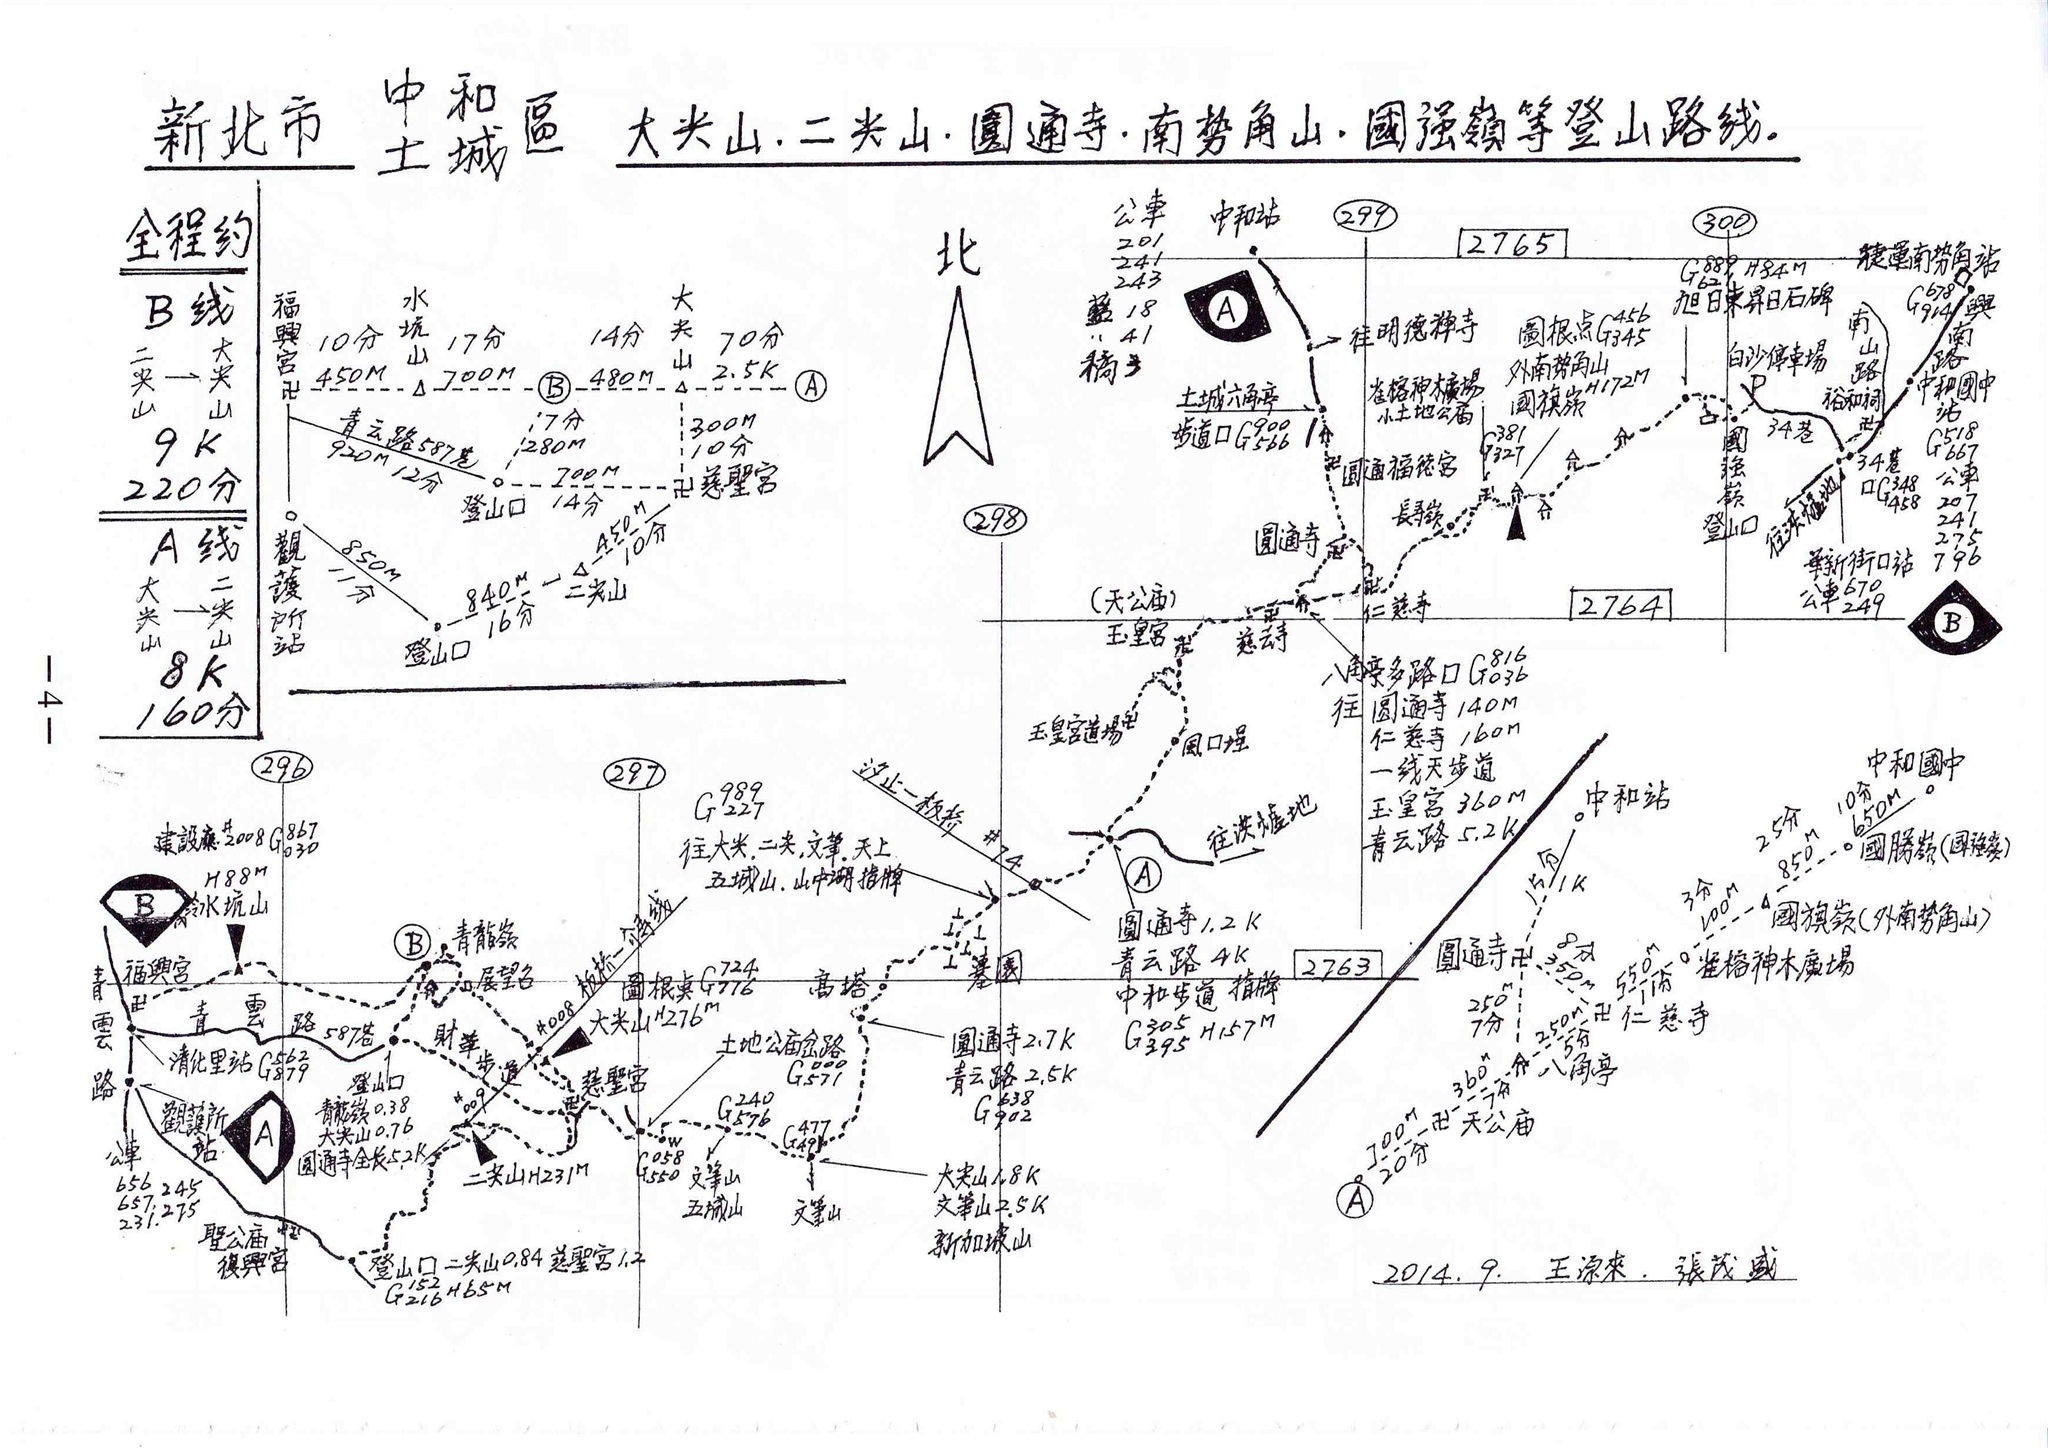 新北市 中和 土城 區 大尖山.二尖山.圓通寺.南勢角山.國强嶺等登山路线。
全程约
B线
二尖山→大尖山
9K
220分
A线
大尖山→二尖山
8K
160分
—4—
福興宮
10分
450M
水坑山
17分
700M
B
14分
480M
大尖山
70分
2.5K
A
青云路587巷
920M 12分
7分
280M
登山口
700M
14分
300M
10分
慈聖宮
450M
10分
二尖山
840M
16分
登山口
850M
11分
觀護所站
北
公車
201
241
243
藍18
〃41
橘3
中和站
A
299
2765
300
往明德禅寺
土城六角亭
步道口G900 566
圓通福德宮
圓通寺
長壽嶺
雀榕神木廣場
小土地公庙
G381 327
圖根点G456 345
外南勢角山
國旗嶺H172M
G889 621 H84M
旭日東昇日石碑
白沙停車場
P
南山路
裕和祠
34巷
國强嶺
登山口
捷運南勢角站
G678 914
興南路
中和國中站
G518 667
公車
207
241
275
796
34巷口G348 458
華新街口站
公車670
249
B
2764
298
(天公庙)
玉皇宮
慈云寺
仁慈寺
八角亭多路口G816 036
往圓通寺140M
仁慈寺160M
一线天步道
玉皇宮360M
青云路5.2K
玉皇宮道場
風口埕
汐止—板桥
#74
A
圓通寺1.2K
青云路4K
中和步道指牌
G305 395 H157M
2763
296
297
G989 227
往大尖.二尖.文筆.天上
五城山.山中湖指牌
墓園
高塔
圓通寺2.7K
青云路2.5K
G638 902
大尖山1.8K
文筆山2.5K
新加坡山
G477 491
文筆山
G240 576
文筆山
五城山
W
G058 550
土地公庙岔路
G000 571
慈聖宮
圖根桌G724 776
大尖山H276M
#008
#009
財華步道
二尖山H231M
B
青龍嶺
展望台
建設廳#2008 G867 030
H88M
冷水坑山
B
福興宮
青雲路
青雲路587巷
清化里站G562 879
觀護所站
A
登山口
青龍嶺0.38
大尖山0.76
圓通寺全长5.2K
公車
656.245
657.275
231.
聖公庙
復興宮
登山口 二尖山0.84 慈聖宮1.2
G152 216 H65M
中和站
15分
1K
圓通寺
8分
350M
250M
7分
250M
5分
仁慈寺
八角亭
360M
7分
天公庙
1700M
20分
A
550M
11分
雀榕神木廣場
3分
100M
國旗嶺(外南勢角山)
25分
850M
國勝嶺(國强嶺)
10分
650M
中和國中
2014.9. 王源來.張茂盛